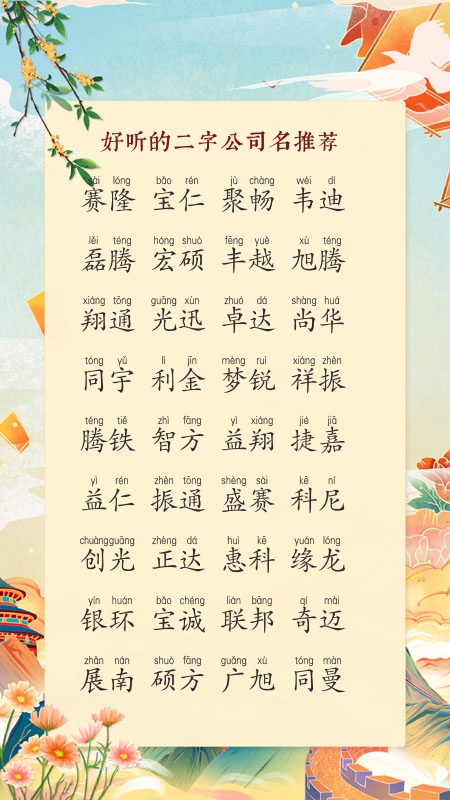 好听的二字公司名推荐
sài lóng bǎo rén jù chàng wéi dí
赛隆 宝仁 聚畅 韦迪
lěi téng hóng shuò fēng yuè xù téng
磊腾 宏硕 丰越 旭腾
xiáng tōng guāng xùn zhuó dá shàng huá
翔通 光迅 卓达 尚华
tóng yǔ lì jīn mèng ruì xiáng zhèn
同宇 利金 梦锐 祥振
téng tiě zhì fāng yì xiáng jié jiā
腾铁 智方 益翔 捷嘉
yì rén zhèn tōng shèng sài kē ní
益仁 振通 盛赛 科尼
chuàngguāng zhèng dá huì kē yuán lóng
创光 正达 惠科 缘龙
yín huán bǎo chéng lián bāng qí mài
银环 宝诚 联邦 奇迈
zhǎn nán shuò fāng guǎng xù tóng màn
展南 硕方 广旭 同曼